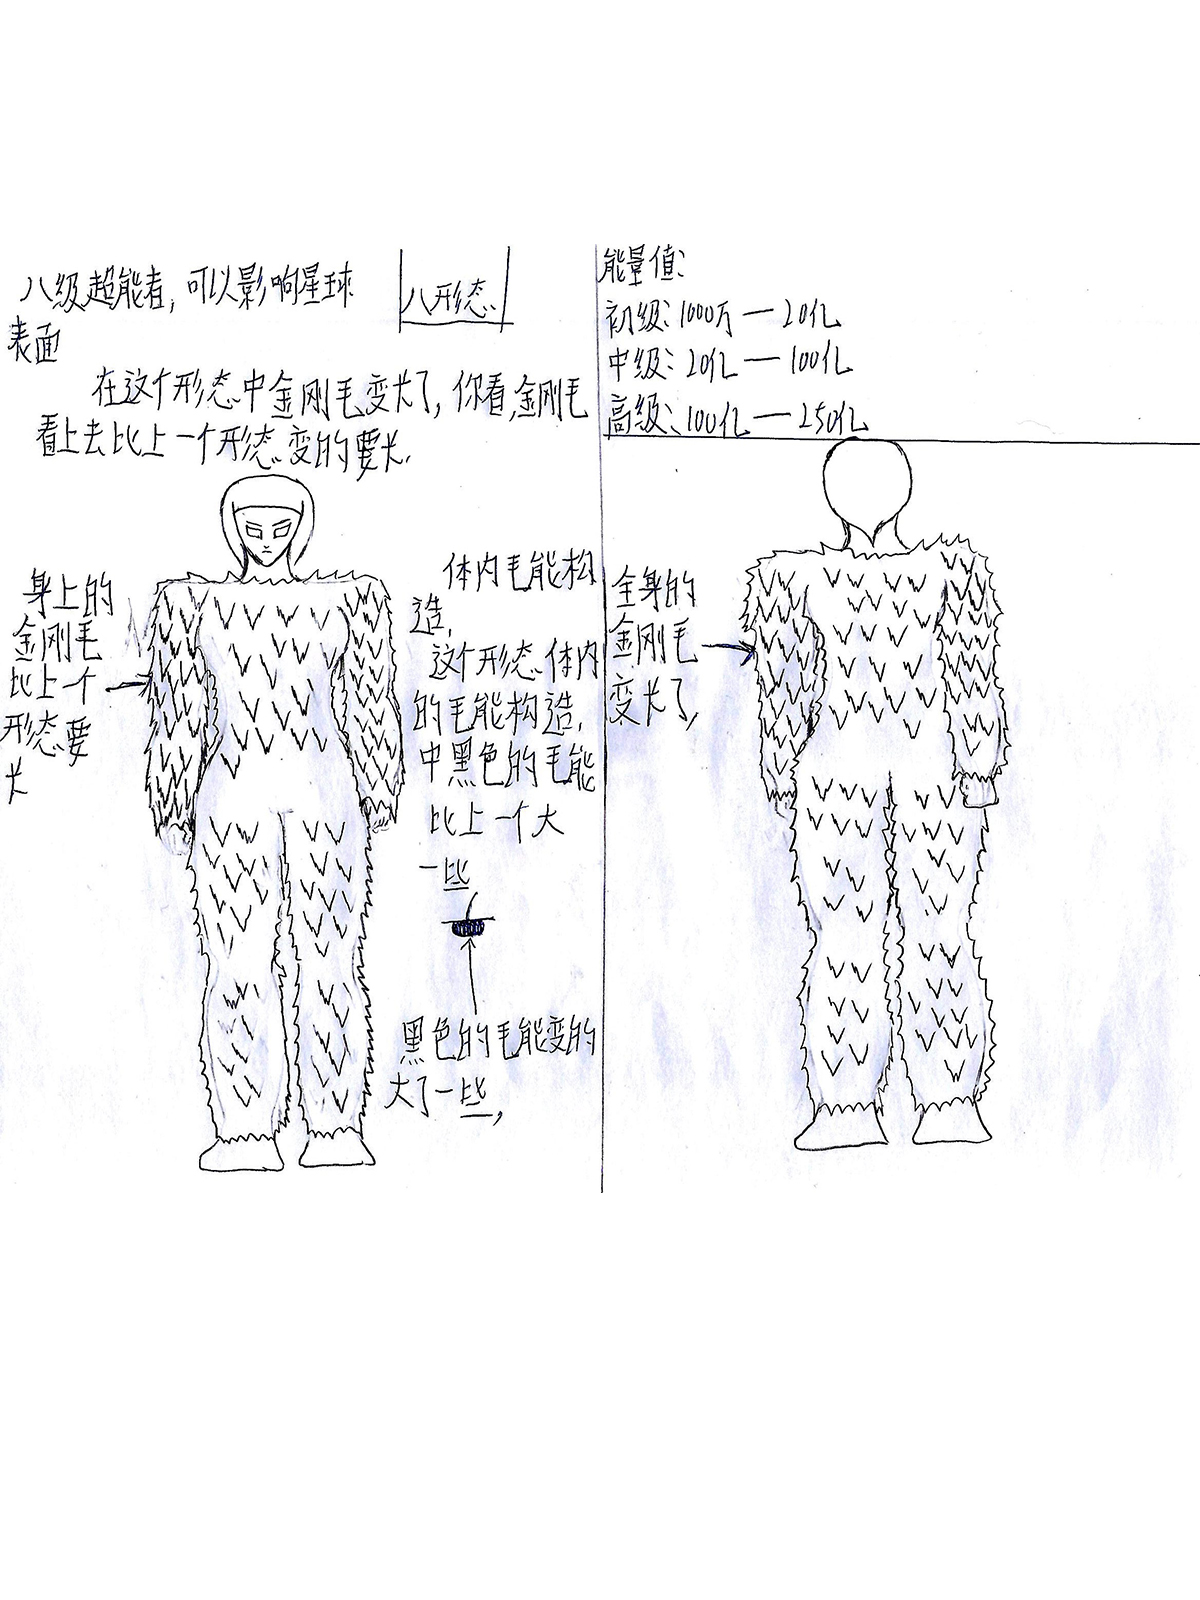 八级超能者,可以影响星球
表面
八形态
在这个形态中金刚毛变长了,你看,金刚毛
看上去比上一个形态变的要长.
身上的
金刚毛
比上个
形态要
长
体内毛能构
造,
这个形态体内
的毛能构造,
中黑色的毛能
比上一个大
一些
黑色的毛能变的
大了一些,
能量值:
初级:1000万—20亿
中级:20亿—100亿
高级:100亿—250亿
全身的
金刚毛
变长了,